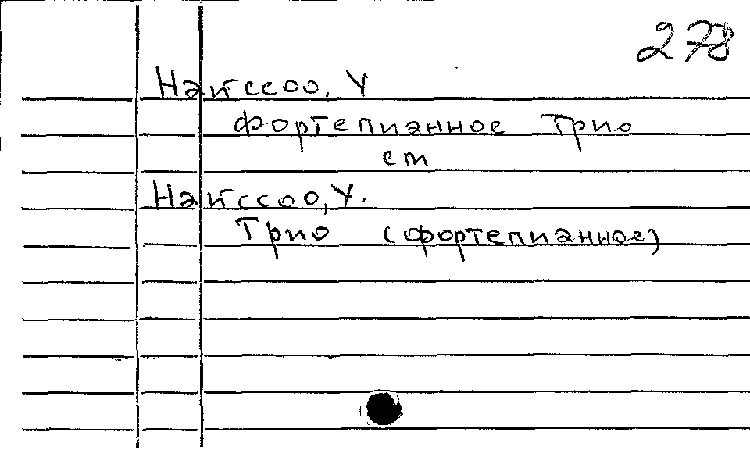 278
Найссоо, У
Фортепианное трио
см
Найссоо, У.
Трио (фортепианное)